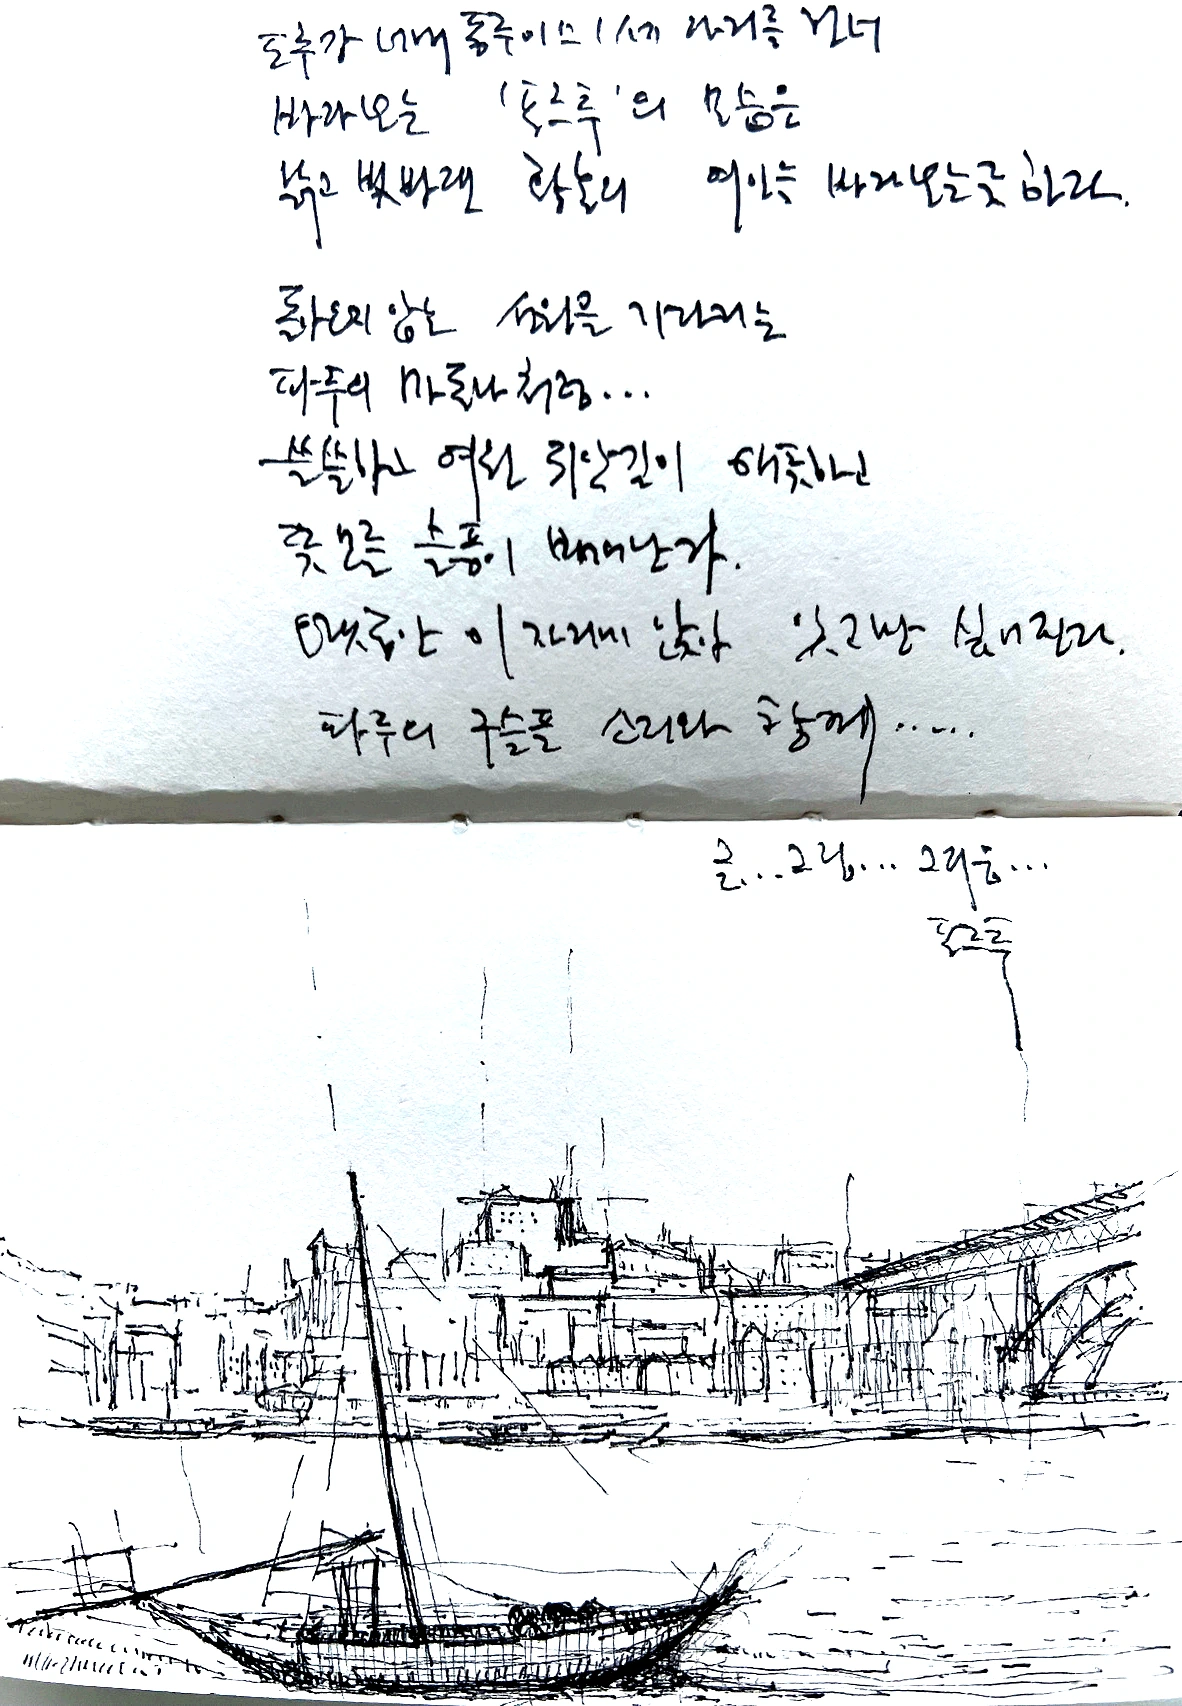 도루강 너머 동루이스 1세 다리를 건너
바라보는 '포르투'의 모습은
늙고 빛바랜 항구의 여인을 바라보는 듯 하다.
돌아오지 않는 선원을 기다리는
파두의 마리아처럼...
쓸쓸하고 여린 뒤안길이 애틋하고
뜻 모를 슬픔이 배어난다.
오래도록 이 자리에 앉아 있고만 싶어진다.
파두의 구슬픈 소리와 함께.....
글...그림...그리움...
포르투